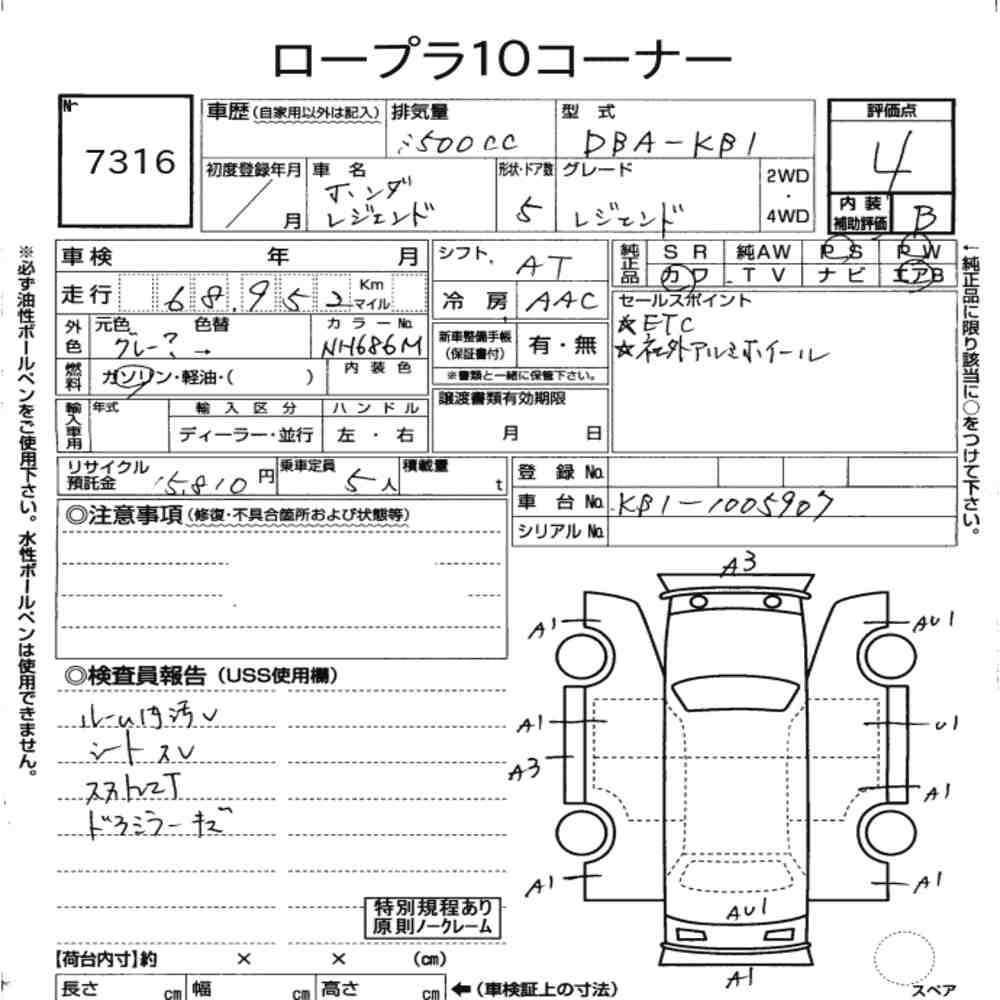 ロープラ10コーナー
№ 7316
車歴(自家用以外は記入) 排気量 型式 評価点
3500CC DBA-KB1 4
初度登録年月 車名 形状・ドア数 グレード 2WD・4WD 内装補助評価
/ 月 ホンダ レジェンド 5 レジェンド B
車検 年 月 シフト AT
純正品 SR 純AW PS PW
カワ TV ナビ エアB
走行 68,952 Km マイル
冷房 AAC
セールスポイント
☆ETC
☆社外アルミホイール
外色 元色 色替 カラーNo.
グレー? → NH686M
新車整備手帳(保証書付) 有・無
※書類と一緒に保管下さい。
燃料 ガソリン・軽油・( ) 内装色
譲渡書類有効期限
月 日
輸入車用 年式 輸入区分 ハンドル
ディーラー・並行 左・右
リサイクル預託金 15,810円 乗車定員 5人 積載量 t
登録No.
車台No. KB1-1005907
シリアルNo.
◎注意事項(修復・不具合箇所および状態等)
◎検査員報告(USS使用欄)
ルーム内汚レ
シートスレ
スタトレ2T
ドアミラーキズ
特別規程あり
原則ノークレーム
【荷台内寸】約 × × (cm)
長さ cm 幅 cm 高さ cm
←(車検証上の寸法)
A3
A1 AU1
A1 U1
A3 A1
A1 A1
AU1
A1
スペア
※必ず油性ボールペンをご使用下さい。水性ボールペンは使用できません。
←純正品に限り該当に○をつけて下さい。